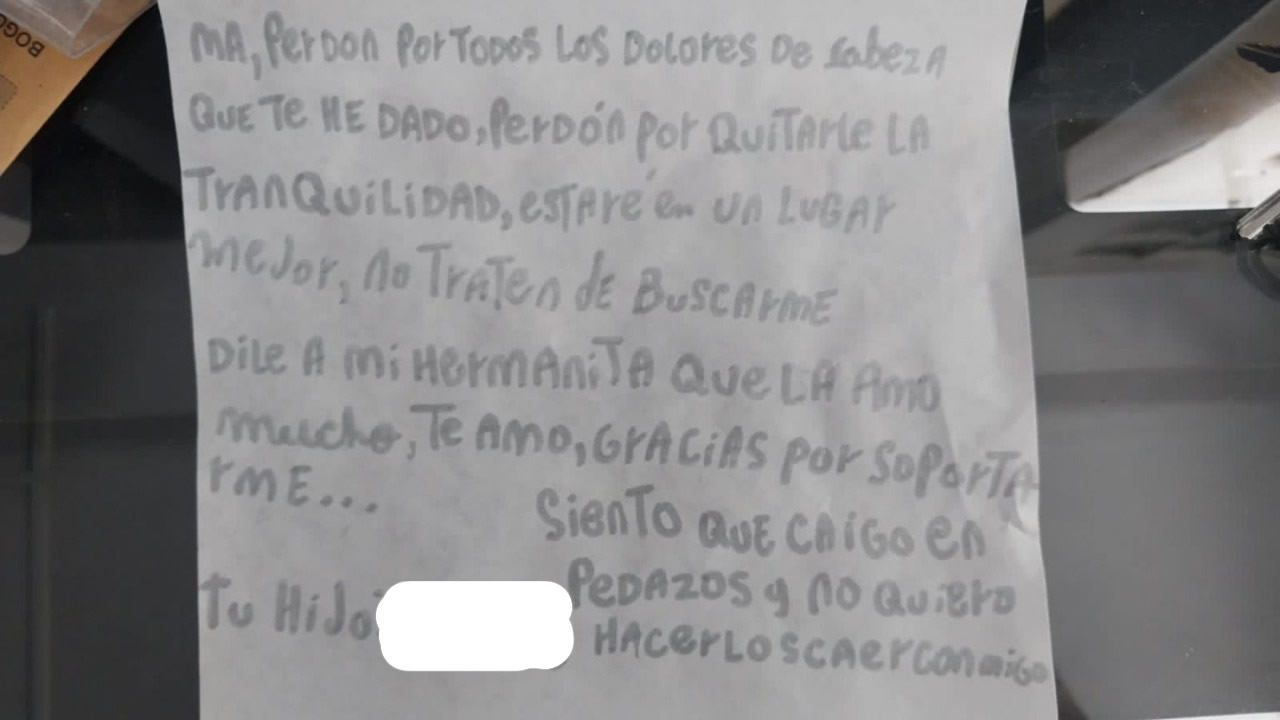 BOGO
MA, Perdon Por TODOS Los DoLores De Sabeza
QUE Te HE DADO, Perdón por QUiTArle LA
TrANQUiLiDAD, esTAré en un LUGAr
meJor, no TraTen dE BuscArmE
DiLe A mi HermAniTA Que LA Amo
mucho, Te Amo, GrAciAs por SoporTA
rmE...
SienTo QUE CAiGo en
PeDAZOS y no QuiEro
HAcerLos caer conmigo
Tu HiJo